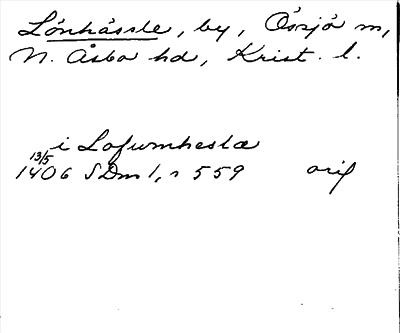 Lönhässle, by, Össjö m,
N. Åsbo hd, Krist. l.
i Lofwmheslæ
13/5
1406 SDm 1, s 559 orig